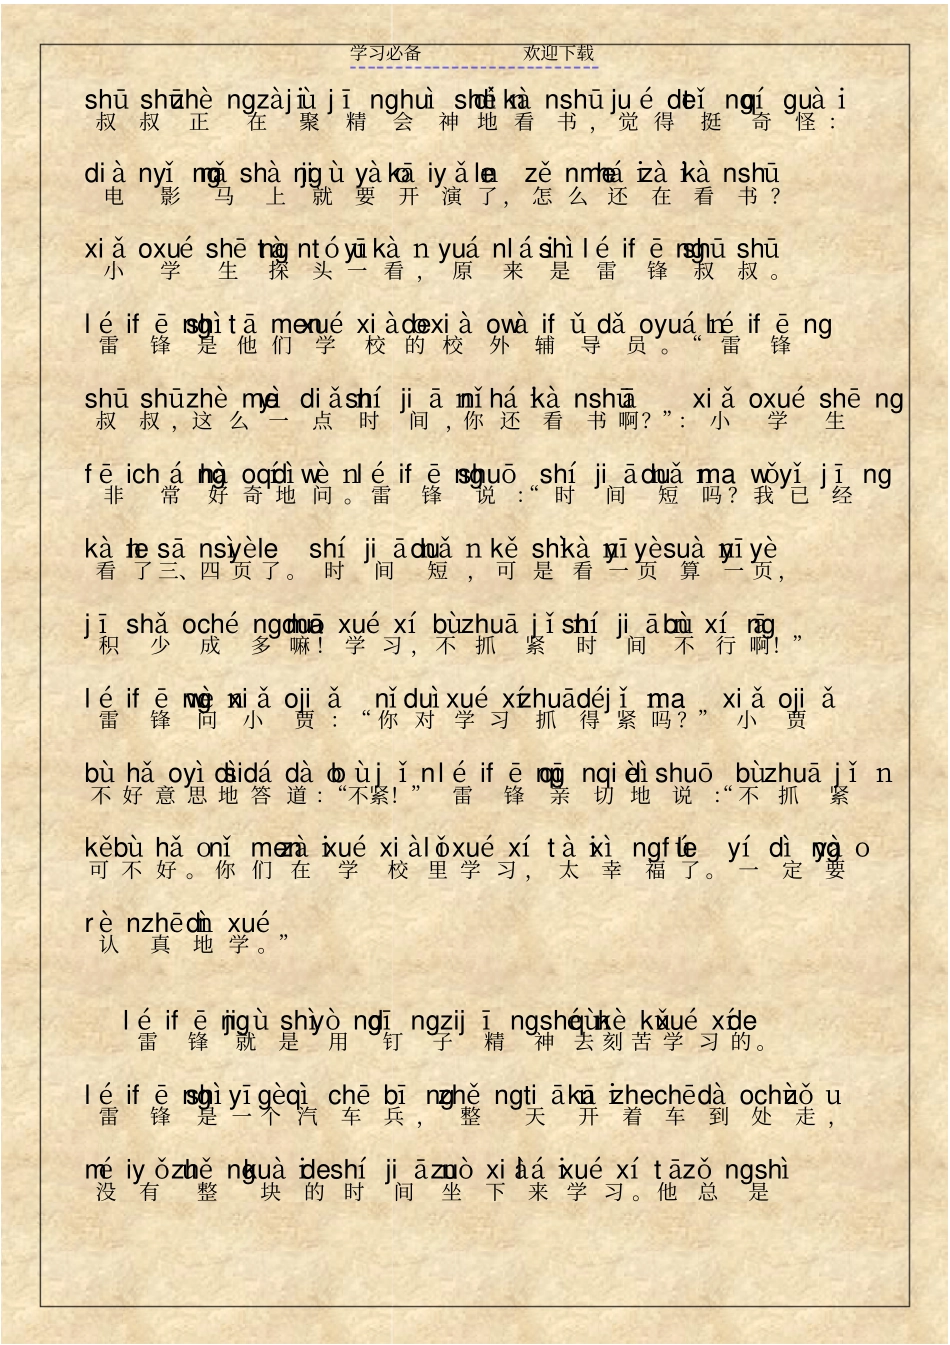 学习必备 欢迎下载
shū shūzhè ngzàijù jī nghuì shéndìkà nshūjué détǐ ngqí guài
叔叔正在聚精会神地看书,觉得挺奇怪:
dià nyǐ ngmǎ shà ngjiù yàokāiyǎnle zěnmeháizàikà nshū
电影马上就要开演了,怎么还在看书?
xiǎ oxué shē ngtà ntóuyīkà n yuá nláishìléifē ngshū shū
小学生探头一看,原来是雷锋叔叔。
léifē ngshìtā menxué xiàodexià owàifǔdǎoyuánléifē ng
雷锋是他们学校的校外辅导员。“雷锋
shū shūzhè meyì diǎnshí jiānnǐháikà nshūa xiǎ oxué shē ng
叔叔,这么一点时间,你还看书啊?”: 小学生
fē ichá nghà oqídìwè nléifē ngshuō shí jiānduǎ nma wǒyǐ jī ng
非常好奇地问。雷锋说:“时间短吗?我已经
kà nle sā nsìyèle shí jiānduǎ nkě shìkà nyīyèsuà nyīyè
看了三、四页了。时间短,可是看一页算一页,
jī shǎ oché ngduōma xué xí bùzhuā jǐnshí jiānbù xí ngā
积少成多嘛!学习,不抓紧时间不行啊!”
léifē ngwè nxiǎ ojiǎ nǐduìxué xízhuādéjǐ nma xiǎ ojiǎ
雷锋问小贾:“你对学习抓得紧吗?”小贾
bù hǎ oyìsidìdá dà obùjǐ nléifē ngqī nqièdìshuō bùzhuā jǐ n
不好意思地答道:“不紧!”雷锋亲切地说:“不抓紧
kěbù hǎ o nǐ menzà ixué xiàolǐxué xí tàixì ngfúle yí dì ngyà o
可不好。你们在学校里学习,太幸福了。一定要
rè nzhēndì xué
认真地学。”
léifē ngjiù shìyò ngdī ngzijī ngshénqùkè kǔxué xíde
雷锋就是用钉子精神去刻苦学习的。
léifē ngshìyīgèqì chē bī ngzhě ngtiānkāizhechēdà ochùzǒ u
雷锋是一个汽车兵,整天开着车到处走,
méiyǒuzhě ngkuàideshí jiānzuò xiàláixué xí tāzǒ ngshì
没有整块的时间坐下来学习。他总是